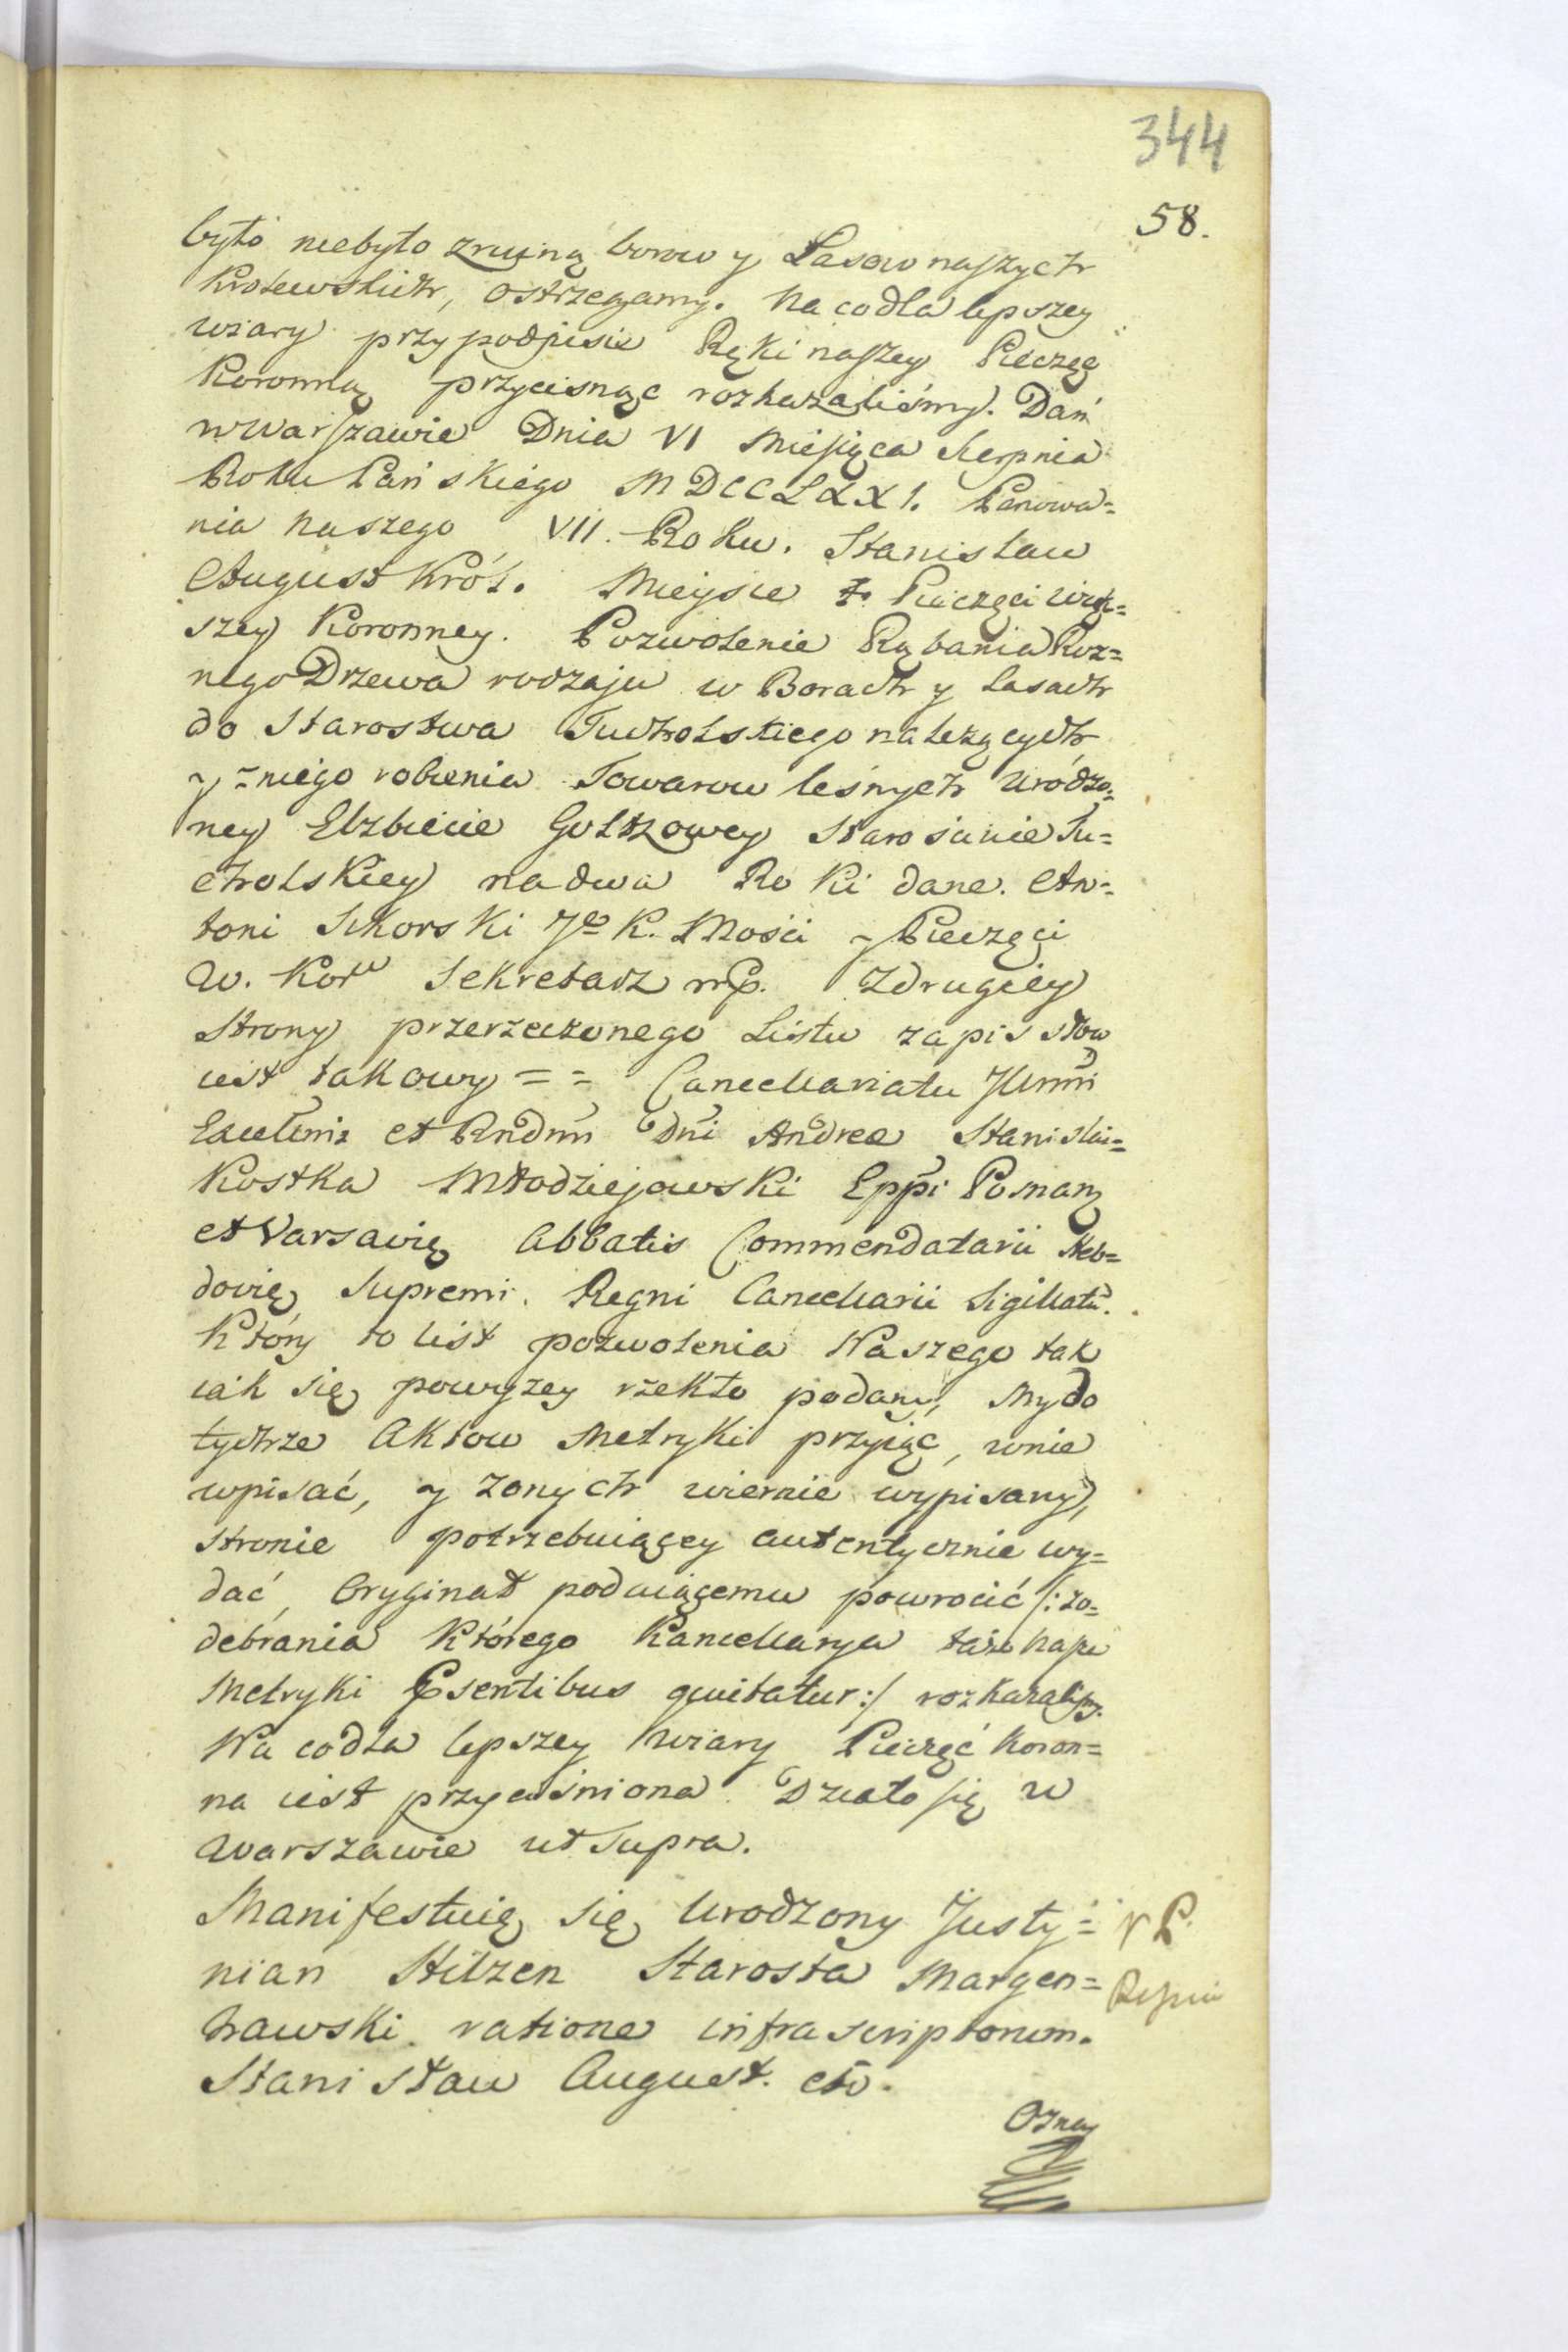 344
58.
było niebyło zruiną borow y Lasow naszych
Krolewskich, ostrzegamy. Na co dla lepszey
wiary przy podpisie Ręki naszey Pieczęć
Koronną przycisnąć rozkazaliśmy. Dan
w Warszawie Dnia VI Miesięca Sierpnia
Roku Pańskiego MDCCLXXI. Panowa=
nia Naszego VII. Roku. Stanisław
August Król. Mieysce Pieczęci Więk=
szey Koronney. Pozwolenie Rąbania Roz=
nego Drzewa rodzaju w Borach y Lasach
do Starostwa Tucholskiego należących
y zniego robienia Towarow leśnych Uródzo=
ney Elzbiecie Goltzowey Starościnie Tu=
cholskiey na dwa Roki dane. An=
toni Sikorski Jo K. Mości y Pieczęci
W. Kor Sekretarz mp. Z drugiey
Strony przerzeczonego Listu zapis słow
iest takowy = = Cancellariatu Illmi
Excellmi et Rndmi Dni Andreæ Stanislai=
Kostka Młodziejowski Eppi Posnan
et Varsavię Abbatis Commendatarii Heb=
dovię Supremi Regni Cancellarii Sigillatu.
Który to list pozwolenia Naszego tak
iak się powyzey rzekło podany, My do
tychże Aktow Metryki przyiąć, wnie
wpisać, y z onych wiernie wypisany,
stronie potrzebuiącey autentycznie wy=
dać, Oryginał podaiącemu powrocić /: zo=
debrania którego Kancellarya taż Nasza
Metryki Psentibus quitatur :/ rozkazaliśmy.
Na co dla lepszey wiary Pieczęć Koron=
na iest przyciśniona. Działo się w
Warszawie ut Supra.
Manifestuię się Urodzony Justy=
nian Hilzen Starosta Margen=
hawski ratione infrascriptorum.
Stanisław August. etc.
Oznay